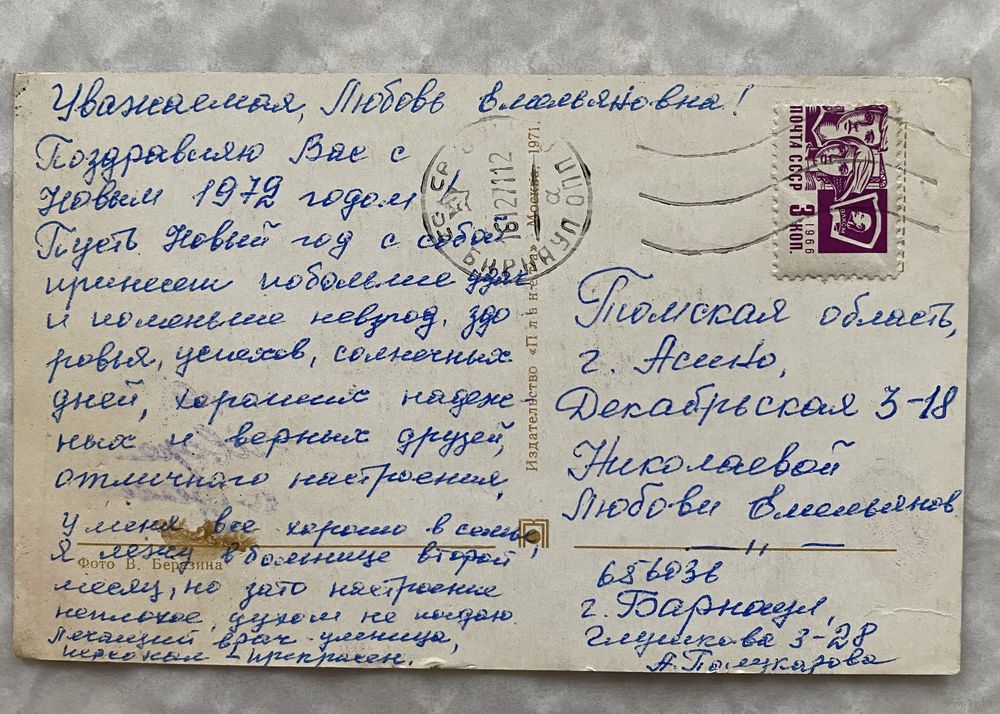 Уважаемая, Любовь Емельяновна!
Поздравляю Вас с
Новым 1972 годом!
Пусть Новый год с собой
принесет побольше удач
и поменьше невзгод, здо
ровья, успехов, солнечных
дней, хороших надеж-
ных и верных друзей,
отличного настроения.
У меня все хорошо в семье,
Я лежу в больнице второй
месяц, но зато настроение
неплохое, духом не падаю
Лечащий врач умница,
персонал - прекрасен.
Фото В. Березина
Издательство «Планета» Москва, 1971.
16 12 71 12
БАРНАУЛ
ПОЧТА СССР
3 КОП.
1966
Томская область,
г. Асино,
Декабрьская 3-18
Николаевой
Любови Емельянов
— " —
656036
г. Барнаул,
Глушкова 3-28
www.ay.by